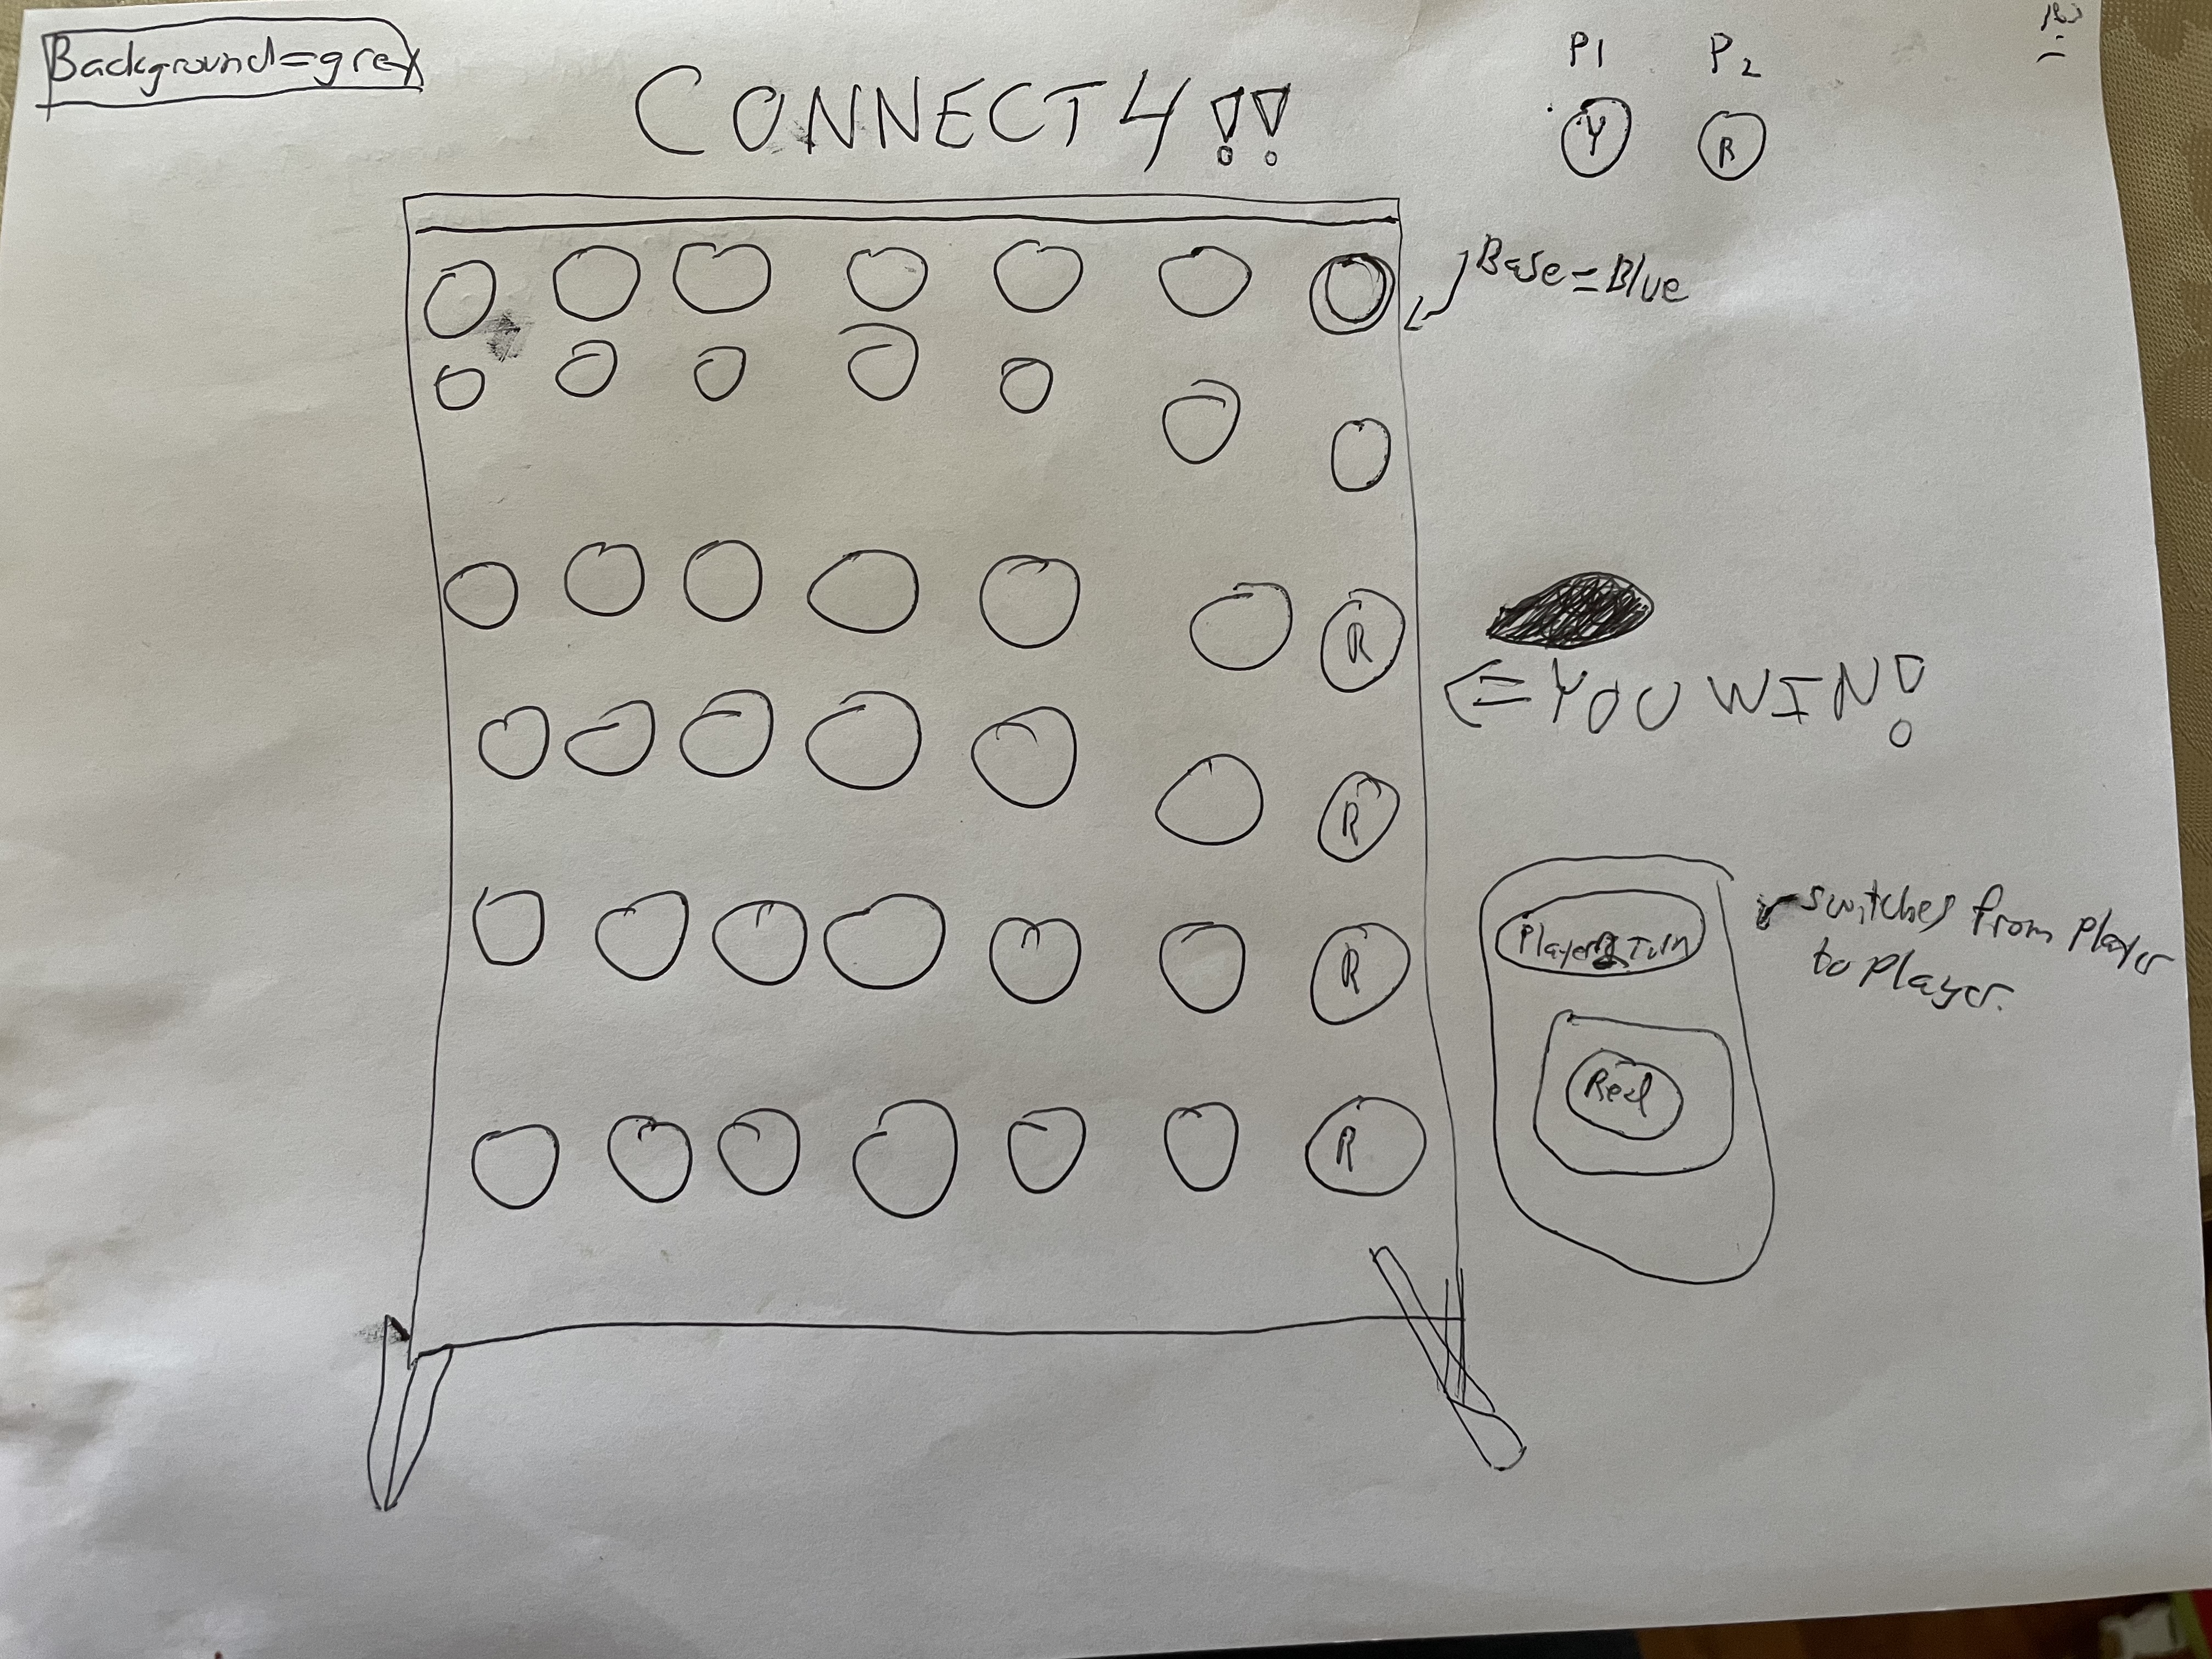 Background=grey
CONNECT 4!!
P1 P2
Y R
Base=Blue
R
R
<=YOU WIN!
R
R
Player 2 Turn
Red
switches from player
to player.